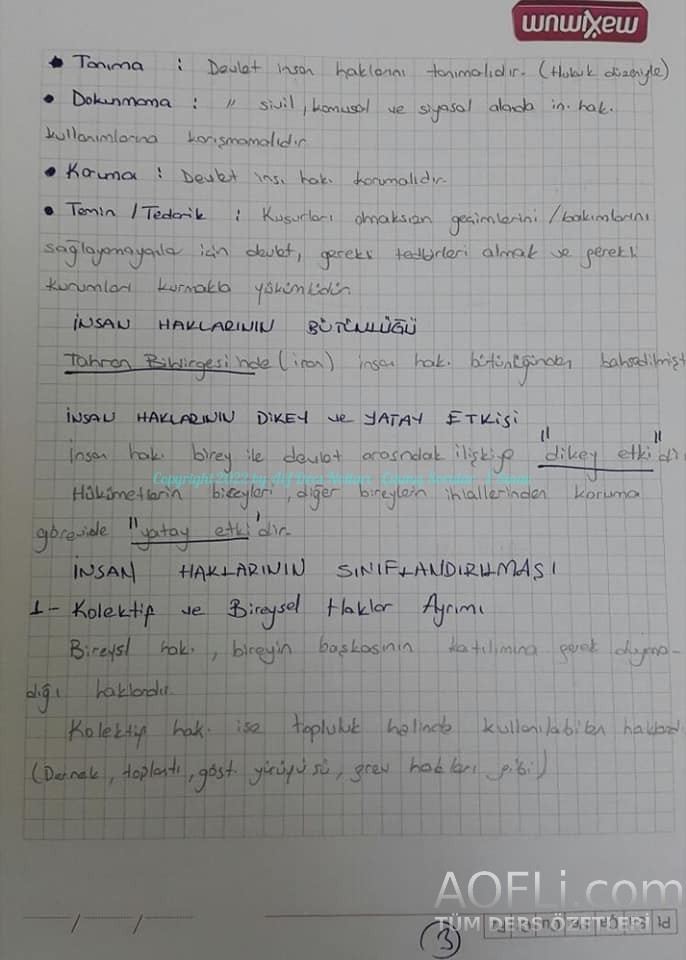 maximum
• Tanıma : Devlet insan haklarını tanımalıdır. (Hukuk düzeniyle)
• Dokunmama : " sivil, kamusal ve siyasal alanda in. hak.
kullanımlarına karışmamalıdır
• Koruma : Devlet ins. hak. korumalıdır.
• Temin / Tedarik : Kusurları olmaksızın geçimlerini / bakımlarını
sağlayamayanla için devlet, gerekli tedbirleri almak ve gerekli
kurumları kurmakla yükümlüdür
İNSAN HAKLARININ BÜTÜNLÜĞÜ
Tahran Bildirgesi'nde (iran) insan hak. bütünlüğünden bahsedilmişt
İNSAN HAKLARININ DİKEY ve YATAY ETKİSİ
İnsan hak. birey ile devlet arasındak ilişkiye "dikey etki" di
Copyright 2022 by
Hükümetlerin bireyleri, diğer bireylein ihlallerinden koruma
görevide "yatay etki'dir.
İNSAN HAKLARININ SINIFLANDIRILMASI
1- Kolektif ve Bireysel Haklar Ayrımı
Bireysl hak., bireyin başkasının katılımına gerek duyma-
dığı haklardır
Kolektif hak. ise topluluk halinde kullanılabilen haklard
(Dernek, toplantı, göst. yürüyüşü, grev hakları gibi)
AOFLi.com
TÜM DERS ÖZETLERİ
3